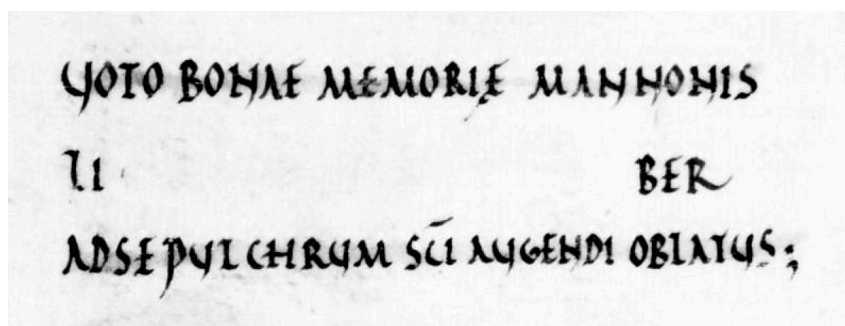 VOTO BONAE MEMORIĘ MANNONIS
LI BER
ADSEPULCHRUM SC̅I AUGENDI OBLATUS;